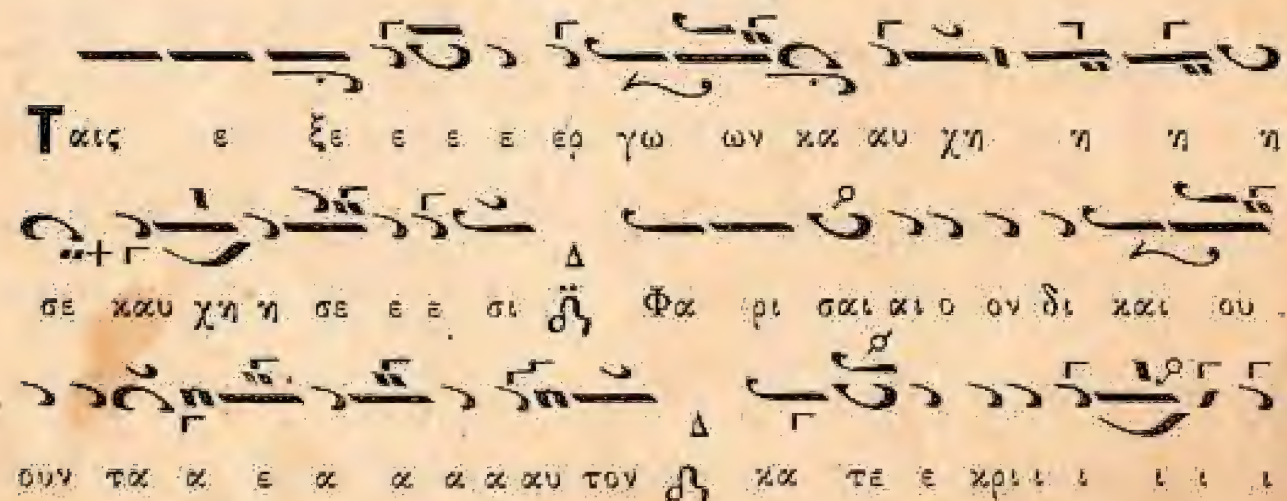 Ταις ε ξε ε ε ε ερ γω ων κα αυ χη η η η
σε καυ χη η σε ε ε σι Δ Φα ρι σαι αι ο ον δι και ου
ουν τα α ε α α α α αυ τον Δ κα τε ε κρι ι ι ι ι